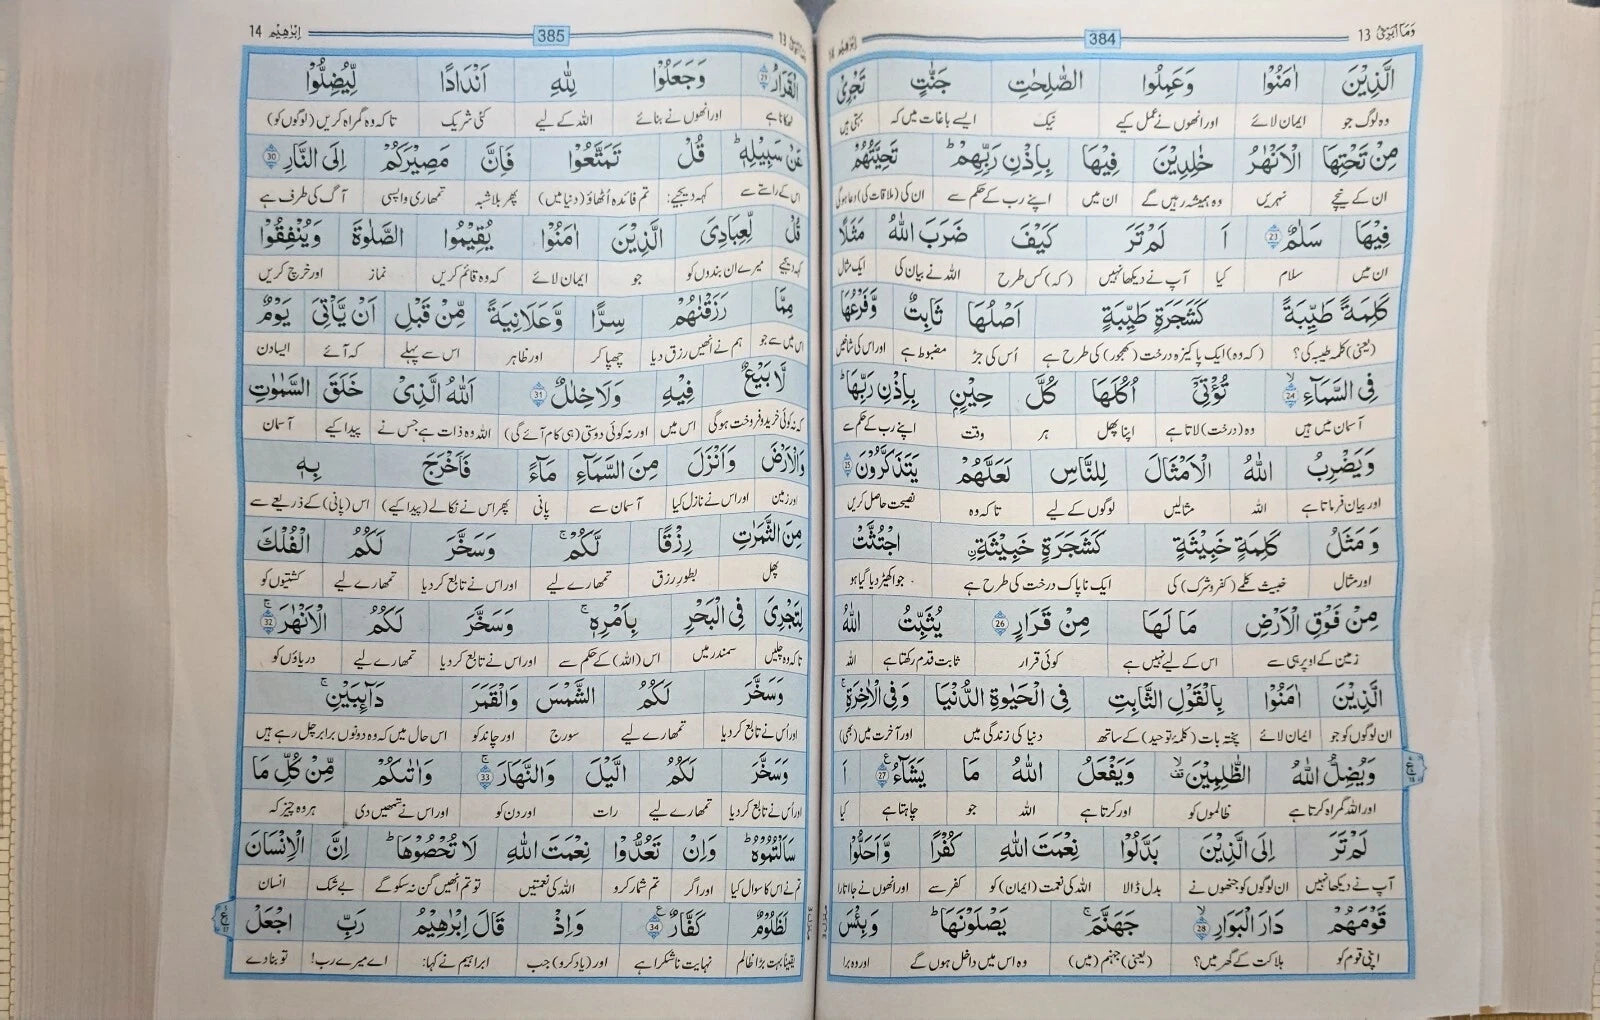 وَمَآ اُبَرِّئُ 13 384 اِبْرٰهِيْم 14
الَّذِيْنَ اٰمَنُوْا وَعَمِلُوا الصّٰلِحٰتِ جَنّٰتٍ تَجْرِيْ
وہ لوگ جو ایمان لائے اور انھوں نے عمل کیے نیک ایسے باغات میں کہ بہتی ہیں
مِنْ تَحْتِهَا الْاَنْهٰرُ خٰلِدِيْنَ فِيْهَا بِاِذْنِ رَبِّهِمْ ؕ تَحِيَّتُهُمْ
ان کے نیچے نہریں وہ ہمیشہ رہیں گے ان میں اپنے رب کے حکم سے ان کی (ملاقات کی) دعا ہوگی
فِيْهَا سَلٰمٌ 23 اَ لَمْ تَرَ كَيْفَ ضَرَبَ اللّٰهُ مَثَلًا
ان میں سلام کیا آپ نے دیکھا نہیں (کہ) کس طرح اللہ نے بیان کی ایک مثال
كَلِمَةً طَيِّبَةً كَشَجَرَةٍ طَيِّبَةٍ اَصْلُهَا ثَابِتٌ وَّفَرْعُهَا
(یعنی) کلمہ طیبہ کی؟ (کہ وہ) ایک پاکیزہ درخت (کھجور) کی طرح ہے اُس کی جڑ مضبوط ہے اور اس کی شاخیں
فِي السَّمَآءِ ۙ 24 تُؤْتِيْٓ اُكُلَهَا كُلَّ حِيْنٍۭ بِاِذْنِ رَبِّهَا ؕ
آسمان میں ہیں وہ (درخت) لاتا ہے اپنا پھل ہر وقت اپنے رب کے حکم سے
وَيَضْرِبُ اللّٰهُ الْاَمْثَالَ لِلنَّاسِ لَعَلَّهُمْ يَتَذَكَّرُوْنَ 25
اور بیان فرماتا ہے اللہ مثالیں لوگوں کے لیے تاکہ وہ نصیحت حاصل کریں
وَ مَثَلُ كَلِمَةٍ خَبِيْثَةٍ كَشَجَرَةٍ خَبِيْثَةِ ۟ اجْتُثَّتْ
اور مثال خبیث کلمے (کفر و شرک) کی ایک ناپاک درخت کی طرح ہے جو اکھیڑ دیا گیا ہو
مِنْ فَوْقِ الْاَرْضِ مَا لَهَا مِنْ قَرَارٍ 26 يُثَبِّتُ اللّٰهُ
زمین کے اوپر ہی سے اس کے لیے نہیں ہے کوئی قرار ثابت قدم رکھتا ہے اللہ
الَّذِيْنَ اٰمَنُوْا بِالْقَوْلِ الثَّابِتِ فِي الْحَيٰوةِ الدُّنْيَا وَفِي الْاٰخِرَةِ ۚ
ان لوگوں کو جو ایمان لائے پختہ بات (کلمۂ توحید) کے ساتھ دنیا کی زندگی میں اور آخرت میں (بھی)
وَيُضِلُّ اللّٰهُ الظّٰلِمِيْنَ ۙ وَيَفْعَلُ اللّٰهُ مَا يَشَآءُ 27 اَ
اور اللہ گمراہ کرتا ہے ظالموں کو اور کرتا ہے اللہ جو چاہتا ہے کیا
لَمْ تَرَ اِلَى الَّذِيْنَ بَدَّلُوْا نِعْمَتَ اللّٰهِ كُفْرًا وَّاَحَلُّوْا
آپ نے دیکھا نہیں ان لوگوں کو جنھوں نے بدل ڈالا اللہ کی نعمت (ایمان) کو کفر سے اور انھوں نے جا اتارا
قَوْمَهُمْ دَارَ الْبَوَارِ ۙ 28 جَهَنَّمَ ۚ يَصْلَوْنَهَا ؕ وَبِئْسَ
اپنی قوم کو ہلاکت کے گھر میں؟ (یعنی) جہنم (میں) وہ اس میں داخل ہوں گے اور وہ برا
13 385 اِبْرٰهِيْم 14
الْقَرَارُ 29 وَجَعَلُوْا لِلّٰهِ اَنْدَادًا لِّيُضِلُّوْا
ٹھکانا ہے اور انھوں نے بنائے اللہ کے لیے کئی شریک تاکہ وہ گمراہ کریں (لوگوں کو)
عَنْ سَبِيْلِهٖ ؕ قُلْ تَمَتَّعُوْا فَاِنَّ مَصِيْرَكُمْ اِلَى النَّارِ 30
اس کے راستے سے کہہ دیجیے: تم فائدہ اُٹھاؤ (دنیا میں) پھر بلاشبہ تمھاری واپسی آگ کی طرف ہے
قُلْ لِّعِبَادِيَ الَّذِيْنَ اٰمَنُوْا يُقِيْمُوا الصَّلٰوةَ وَيُنْفِقُوْا
کہہ دیجیے میرے ان بندوں کو جو ایمان لائے کہ وہ قائم کریں نماز اور خرچ کریں
مِمَّا رَزَقْنٰهُمْ سِرًّا وَّعَلَانِيَةً مِّنْ قَبْلِ اَنْ يَّاْتِيَ يَوْمٌ
اس میں سے جو ہم نے انھیں رزق دیا چھپا کر اور ظاہر اس سے پہلے کہ آئے ایسا دن
لَّا بَيْعٌ فِيْهِ وَلَا خِلٰلٌ 31 اَللّٰهُ الَّذِيْ خَلَقَ السَّمٰوٰتِ
کہ نہ کوئی خرید و فروخت ہوگی اس میں اور نہ کوئی دوستی (ہی کام آئے گی) اللہ وہ ذات ہے جس نے پیدا کیے آسمان
وَالْاَرْضَ وَاَنْزَلَ مِنَ السَّمَآءِ مَآءً فَاَخْرَجَ بِهٖ
اور زمین اور اس نے نازل کیا آسمان سے پانی پھر اس نے نکالے (پیدا کیے) اس (پانی) کے ذریعے سے
مِنَ الثَّمَرٰتِ رِزْقًا لَّكُمْ ۚ وَسَخَّرَ لَكُمُ الْفُلْكَ
پھل بطور رزق تمھارے لیے اور اس نے تابع کر دیا تمھارے لیے کشتیوں کو
لِتَجْرِيَ فِي الْبَحْرِ بِاَمْرِهٖ ۚ وَسَخَّرَ لَكُمُ الْاَنْهٰرَ ۚ 32
تاکہ وہ چلیں سمندر میں اس (اللہ) کے حکم سے اور اس نے تابع کر دیا تمھارے لیے دریاؤں کو
وَسَخَّرَ لَكُمُ الشَّمْسَ وَالْقَمَرَ دَآئِبَيْنِ ۚ
اور اُس نے تابع کر دیا تمھارے لیے سورج اور چاند کو اس حال میں کہ وہ دونوں برابر چل رہے ہیں
وَسَخَّرَ لَكُمُ الَّيْلَ وَالنَّهَارَ ۚ 33 وَاٰتٰىكُمْ مِّنْ كُلِّ مَا
اور اُس نے تابع کر دیا تمھارے لیے رات اور دن کو اور اس نے تمھیں دی ہر وہ چیز کہ
سَاَلْتُمُوْهُ ؕ وَاِنْ تَعُدُّوْا نِعْمَتَ اللّٰهِ لَا تُحْصُوْهَا ؕ اِنَّ الْاِنْسَانَ
تم نے اس کا سوال کیا اور اگر تم شمار کرو اللہ کی نعمتیں تو تم انھیں گن نہ سکو گے بے شک انسان
لَظَلُوْمٌ كَفَّارٌ 34 وَاِذْ قَالَ اِبْرٰهِيْمُ رَبِّ اجْعَلْ
یقیناً بہت بڑا ظالم نہایت ناشکرا ہے اور (یاد کرو) جب ابراہیم نے کہا: اے میرے رب! تو بنا دے